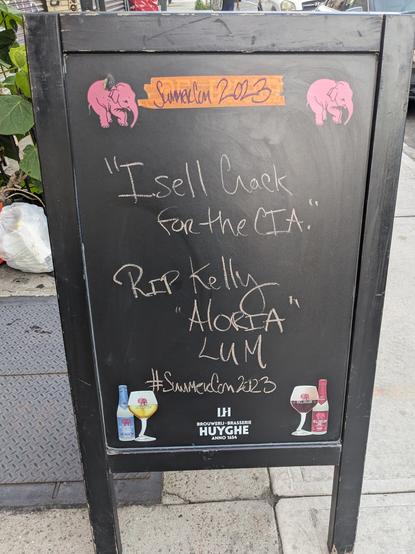 SummerCon 2023
"I sell Crack
For the CIA."
RIP Kelly
"Aloria"
LUM
#SummerCon2023
LH
BROUWERIJ-BRASSERIE
HUYGHE
ANNO 1654